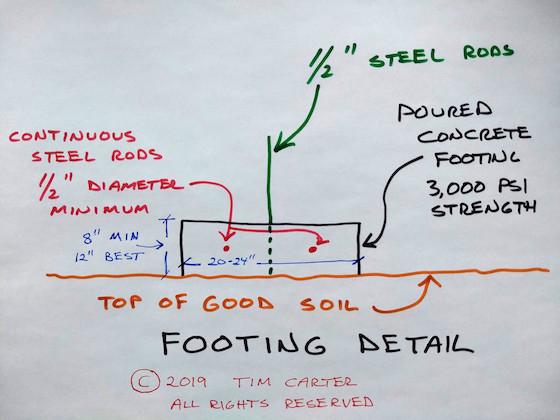 1/2" STEEL RODS
POURED
CONCRETE
FOOTING
3,000 PSI
STRENGTH
CONTINUOUS
STEEL RODS
1/2" DIAMETER
MINIMUM
8" MIN
12" BEST
20-24"
TOP OF GOOD SOIL
FOOTING DETAIL
© 2019 TIM CARTER
ALL RIGHTS RESERVED